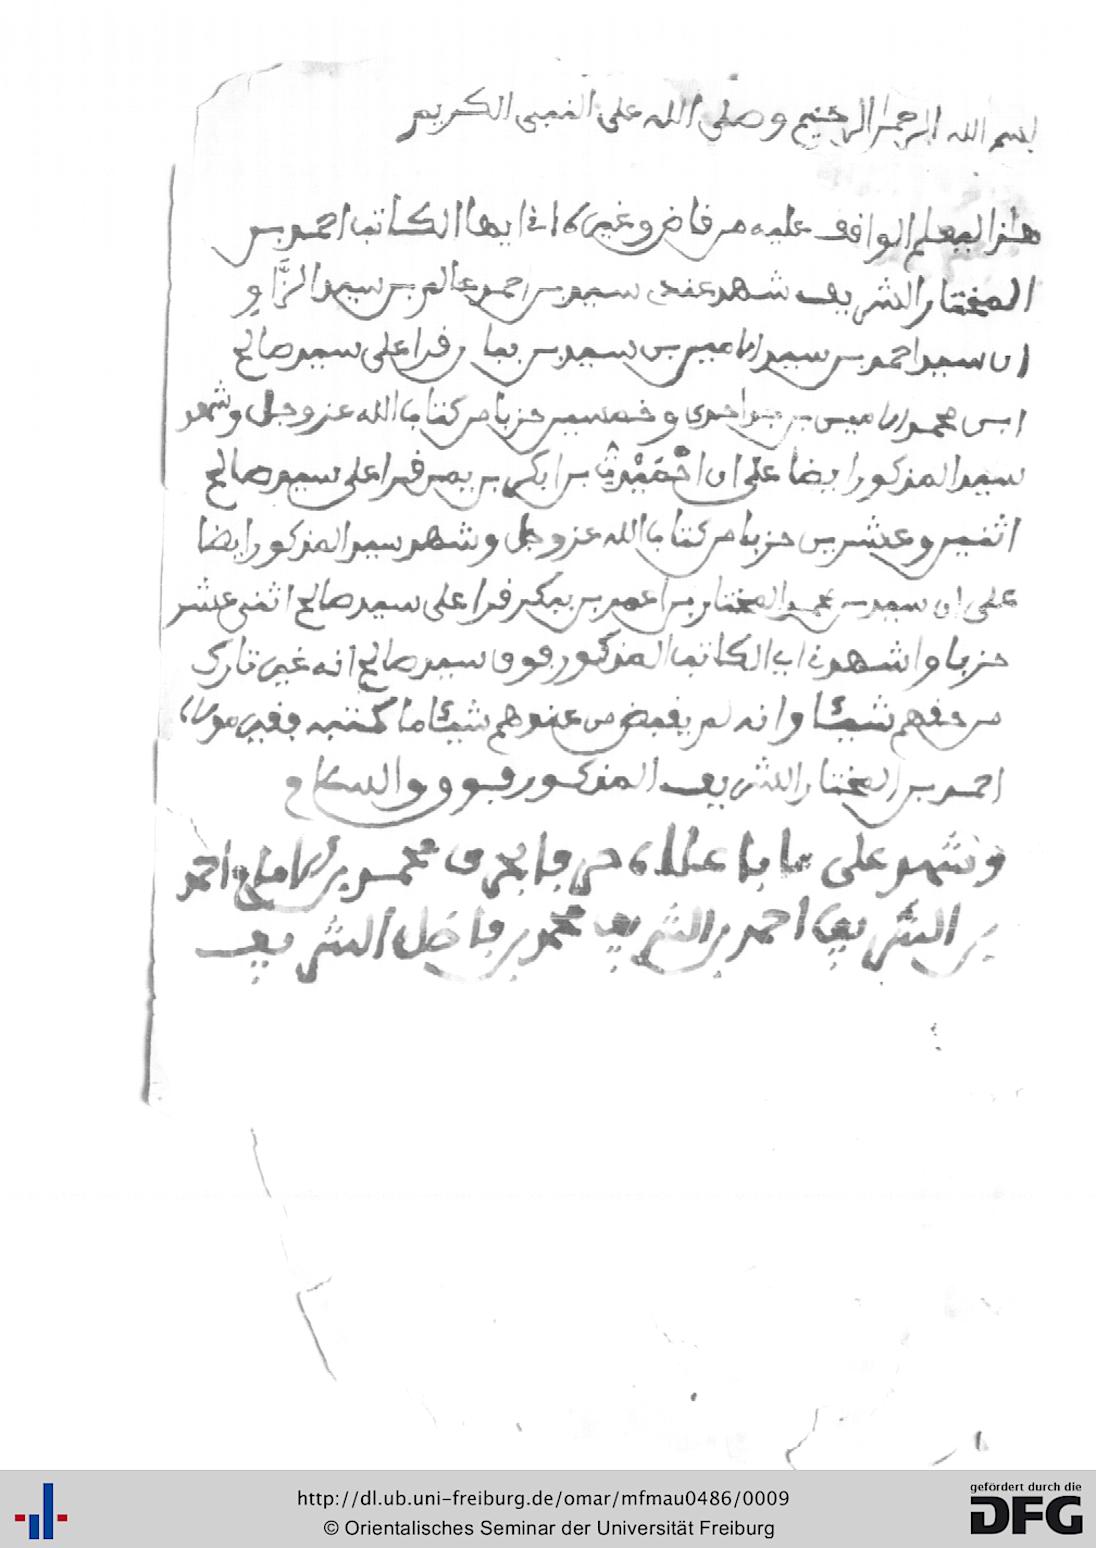 بسم الله الرحمن الرحيم وصلى الله على النبي الكريم
هذا ليعلم الواقف عليه من قاض وغيره اني ايها الكاتب احمد بن
المختار الشريف شهد عندي سيد بن احمد عالم بن سيد
ان سيد احمد بن سيد الامين بن سيد بن قرا على سيد صالح
ابن محمد الامين بن احدى وخمسين حزبا من كتاب الله عز وجل وشهد
سيد المذكور ايضا على ان بن ابكر بن قرا على سيد صالح
اثنين وعشرين حزبا من كتاب الله عز وجل وشهد سيد المذكور ايضا
على ان سيد بن محمد المختار بن اعمر بن بكر قرا على سيد صالح اثنى عشر
حزبا واشهدني اي الكاتب المذكور فوق سيد صالح انه غير تارك
من حقهم شيئا وانه لم يقبض من عندهم شيئا ما كتبه فقير مولاه
احمد بن المختار الشريف المذكور فوق والسلام
وشهد على ما با علاه محمد بن احمد
بن الشريف احمد بن الشريف محمد بن فاضل الشريف
http://dl.ub.uni-freiburg.de/omar/mfmau0486/0009
© Orientalisches Seminar der Universität Freiburg
gefördert durch die
DFG